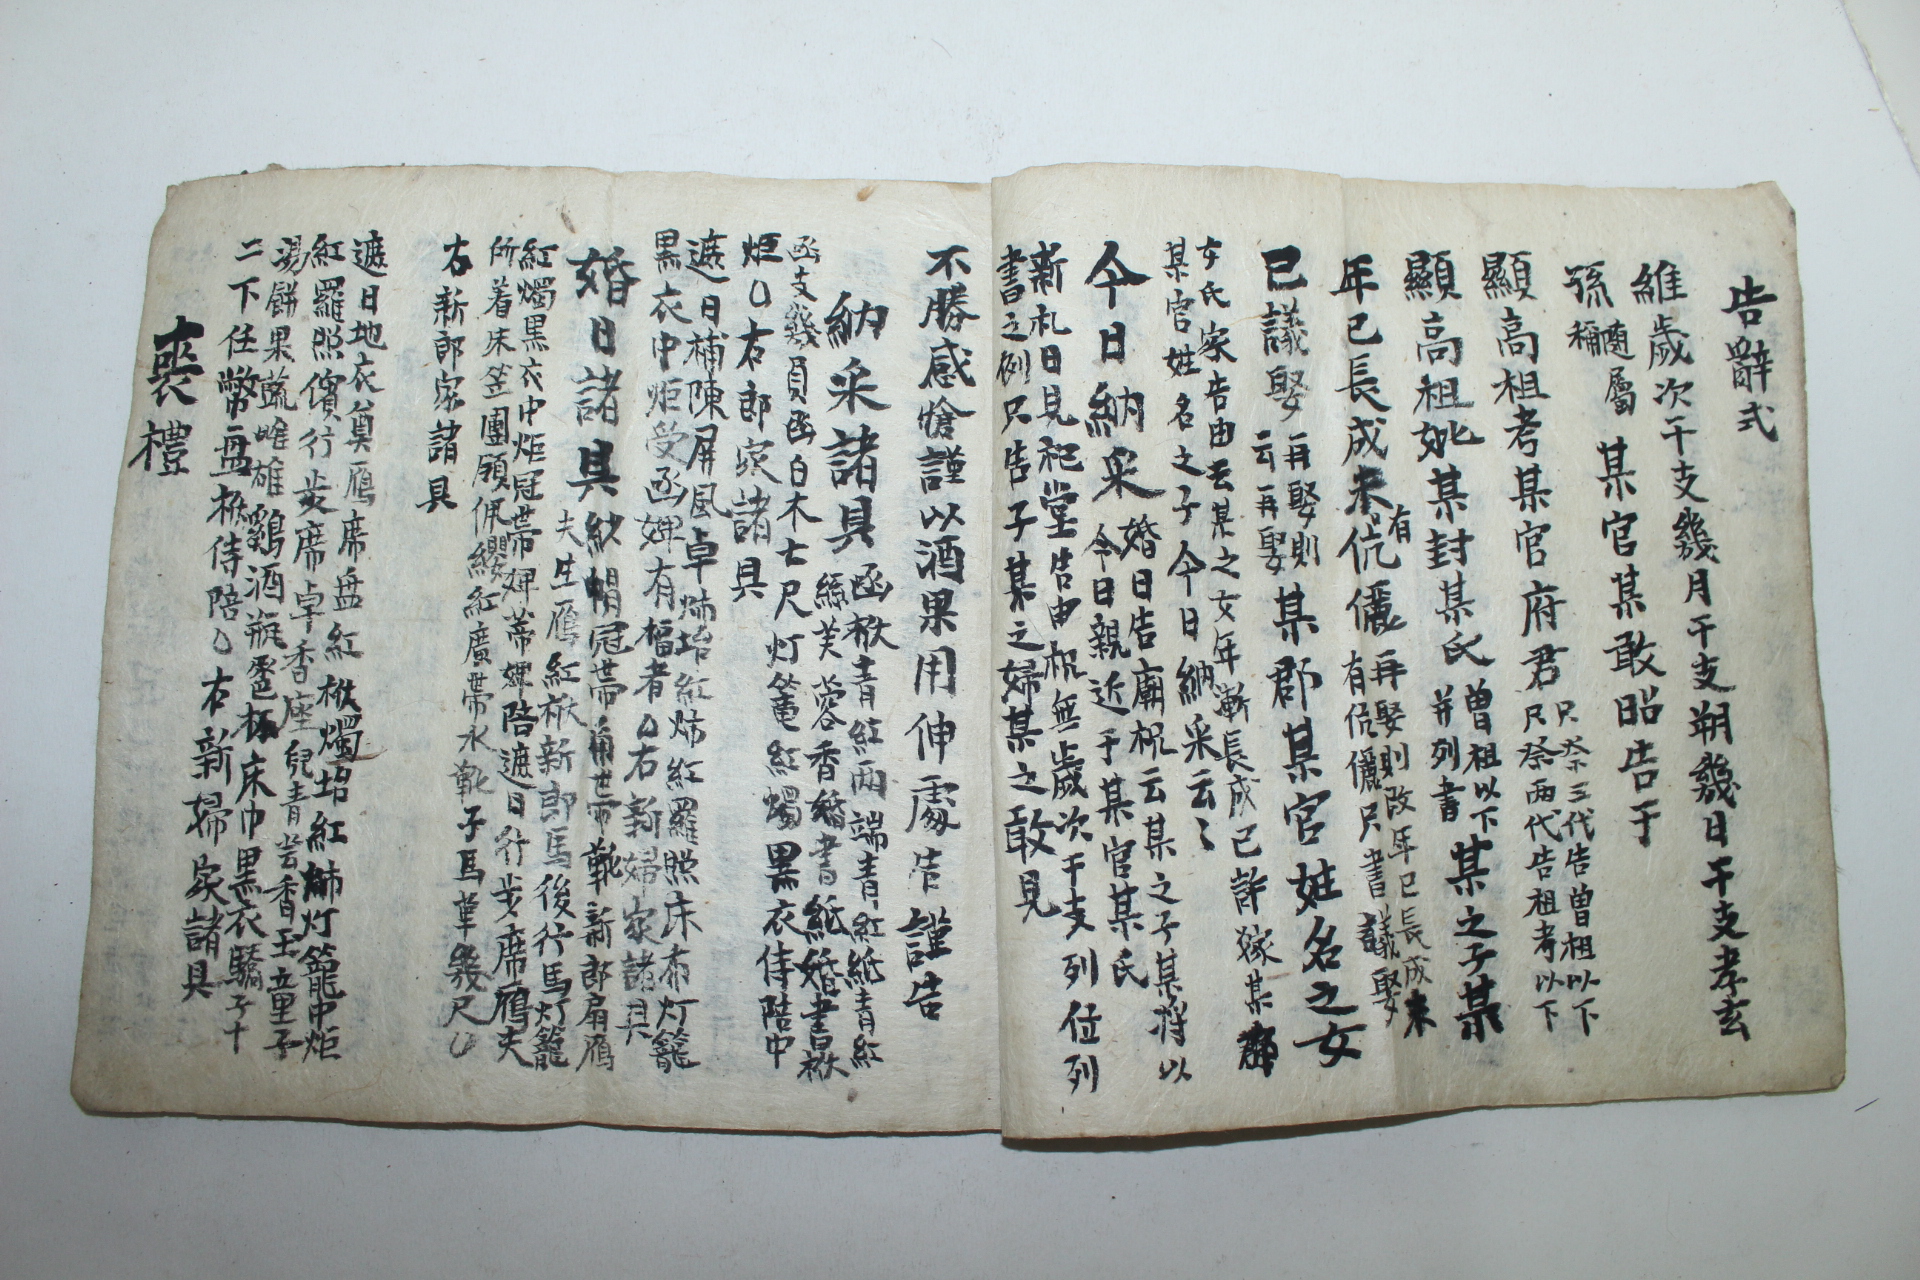 告辭式
維歲次干支幾月干支朔幾日干支孝玄
孫隨屬稱 某官某敢昭告于
顯高祖考某官府君 只祭三代告曾祖以下 只祭兩代告祖考以下
顯高祖妣某封某氏 曾祖以下并列書 某之子某
年已長成未有伉儷 再娶則改年已長成未有伉儷只書議娶
已議娶 再娶則云再娶 某郡某官姓名之女
女氏家告由云某之女年漸長成已許嫁某郡
某官姓名之子今日納采云云
今日納采 婚日告廟祝云某之子某將以今日親迎于某官某氏
新礼日見祀堂告由祝無歲次干支列任列
書之例只告子某之婦某之敢見
不勝感愴謹以酒果用伸處告謹告
納采諸具 函楸青紅兩端青紅紙青紅絲芙蓉香婚書紙婚書楸
函支幾員函白木七尺灯篭紅燭黑衣侍陪中
炬 右郎家諸具
遮日補陳屏風卓
黑衣中炬受函婢有福者 右新婦家諸具
婚日諸具 紗帽冠帶
紅燭黑衣中炬冠帶婢
所着床笠團領佩纓紅廣帶水靴子馬草幾尺
右新郎家諸具
遮日地衣奠鴈席盘紅楸燭
紅羅照儐行步席卓香座兒青
湯餠果蔬雌雄鷄酒瓶
二下任幣盘楸侍陪 右新婦家諸具
喪禮